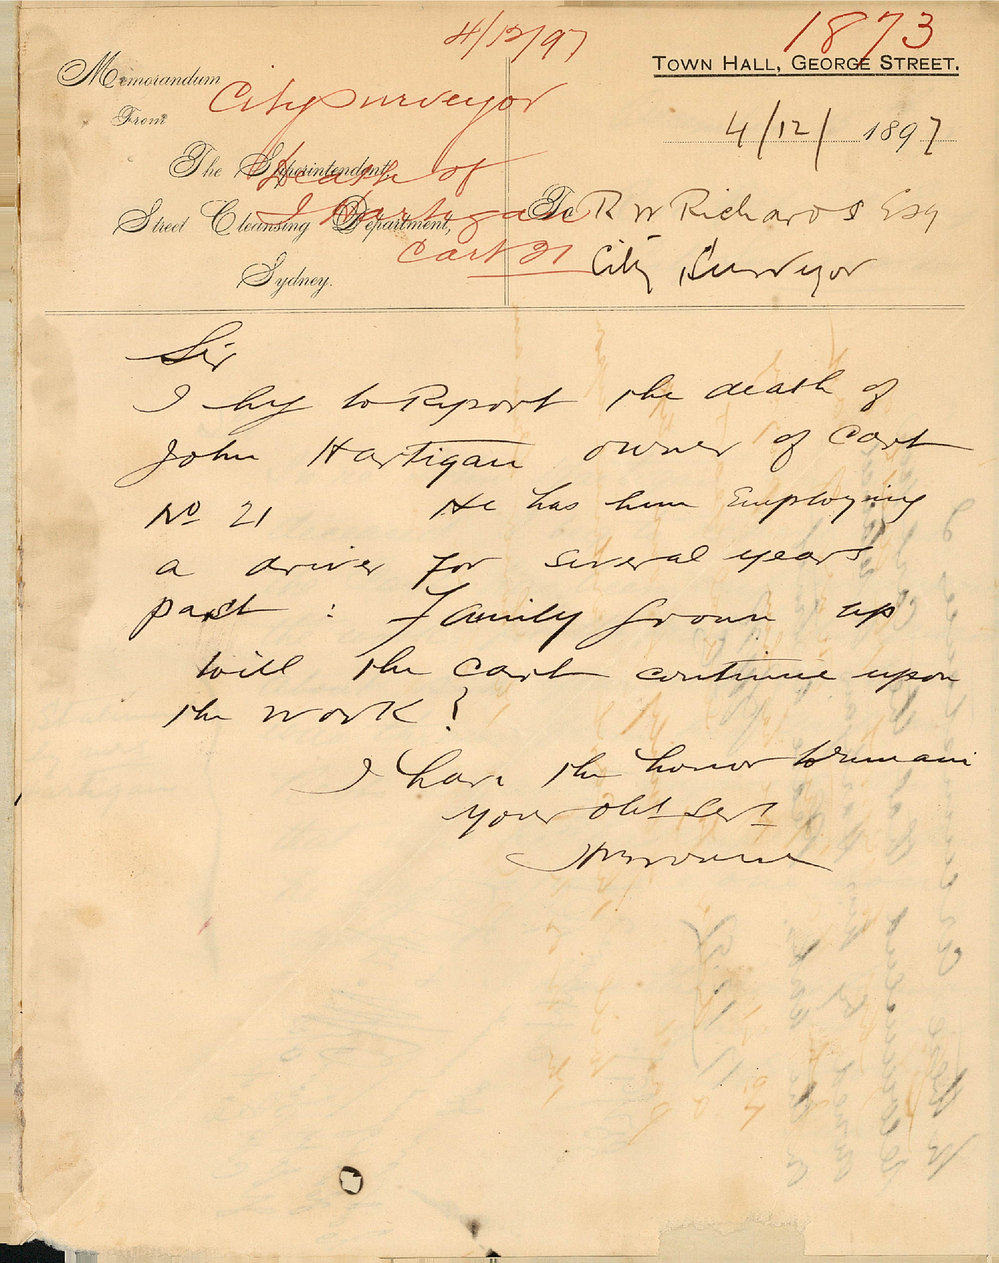 4/12/97
1873
Memorandum
From
City Surveyor
TOWN HALL, GEORGE STREET.
4/12/ 1897
The Superintendent,
Death of
Street Cleansing Department,
J Hartigan
Cart 21
Sydney.
To R W Richards Esq
City Surveyor
Sir
I beg to Report the death of
John Hartigan owner of Cart
No 21 He has been Employing
a driver for several years
past : Family grown up
will the cart continue upon
the work?
I have the honor to remain
your obt Sert